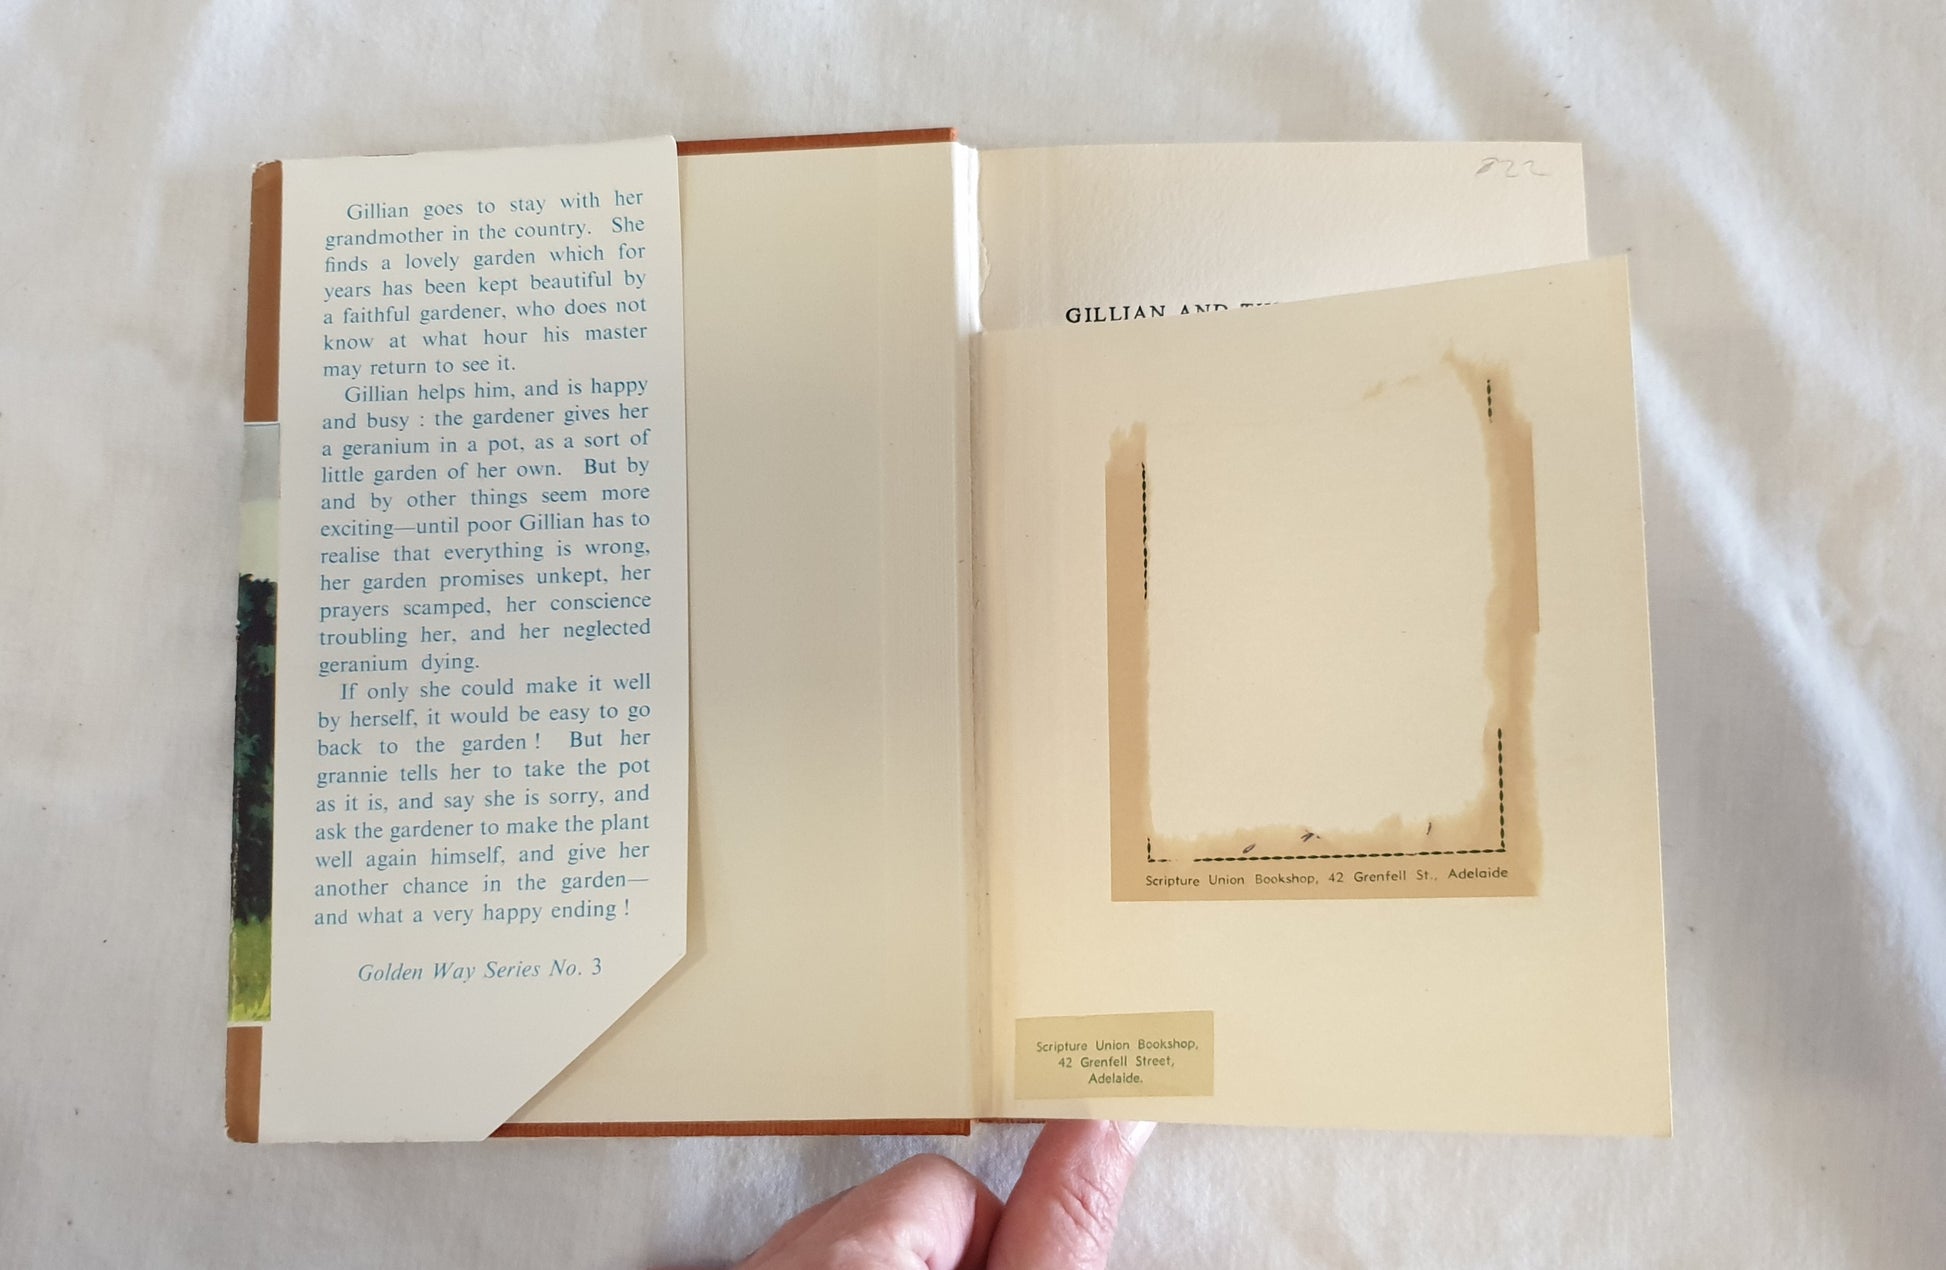 Gillian goes to stay with her
grandmother in the country. She
finds a lovely garden which for
years has been kept beautiful by
a faithful gardener, who does not
know at what hour his master
may return to see it.
Gillian helps him, and is happy
and busy : the gardener gives her
a geranium in a pot, as a sort of
little garden of her own. But by
and by other things seem more
exciting—until poor Gillian has to
realise that everything is wrong,
her garden promises unkept, her
prayers scamped, her conscience
troubling her, and her neglected
geranium dying.
If only she could make it well
by herself, it would be easy to go
back to the garden ! But her
grannie tells her to take the pot
as it is, and say she is sorry, and
ask the gardener to make the plant
well again himself, and give her
another chance in the garden—
and what a very happy ending !
Golden Way Series No. 3
822
GILLIAN AND
Scripture Union Bookshop, 42 Grenfell St., Adelaide
Scripture Union Bookshop,
42 Grenfell Street,
Adelaide.